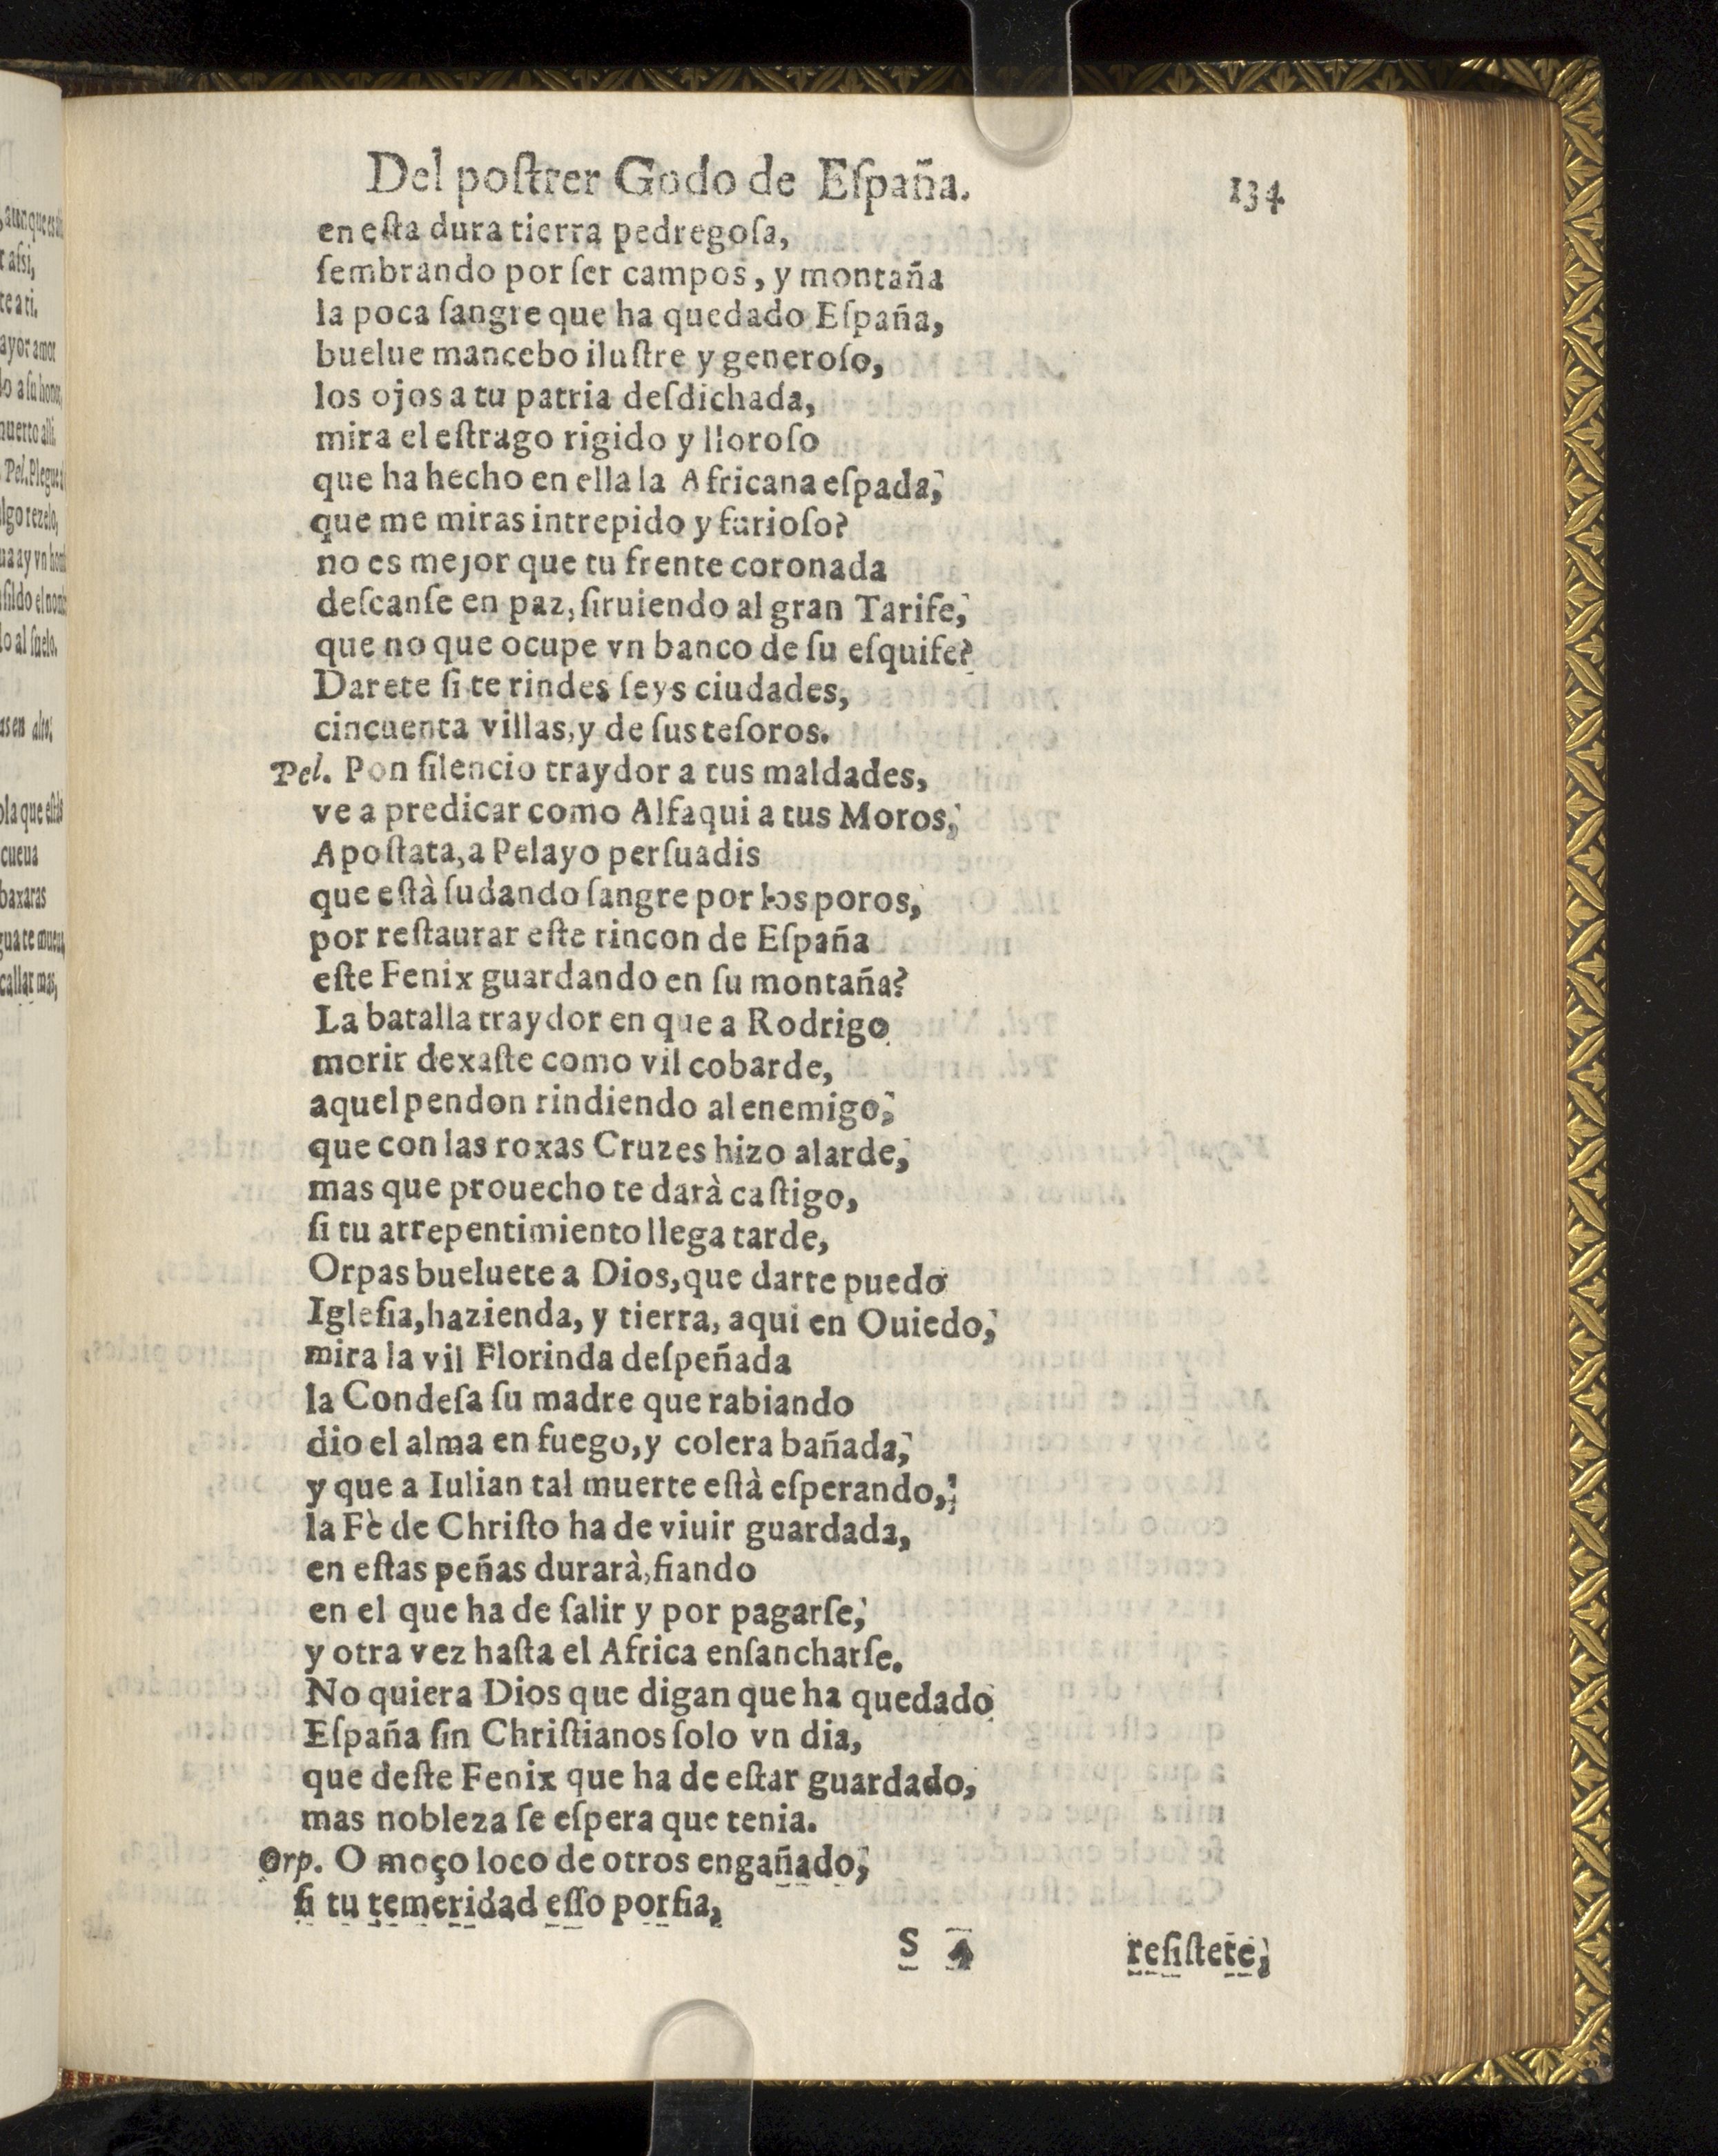 Del poſtrer Godo de Eſpaña. 134
en eſta dura tierra pedregoſa,
ſembrando por ſer campos, y montaña
la poca ſangre que ha quedado Eſpaña,
buelue mancebo iluſtre y generoſo,
los ojos a tu patria deſdichada,
mira el eſtrago rigido y lloroſo
que ha hecho en ella la Africana eſpada,
que me miras intrepido y furioſo?
no es mejor que tu frente coronada
deſcanſe en paz, ſiruiendo al gran Tarife,
que no que ocupe vn banco de ſu eſquife?
Darete ſi te rindes ſeys ciudades,
cincuenta villas, y de ſus teſoros.
Pel. Pon ſilencio traydor a tus maldades,
ve a predicar como Alfaqui a tus Moros,
Apoſtata, a Pelayo perſuadis
que eſtà ſudando ſangre por los poros,
por reſtaurar eſte rincon de Eſpaña
eſte Fenix guardando en ſu montaña?
La batalla traydor en que a Rodrigo
morir dexaſte como vil cobarde,
aquel pendon rindiendo al enemigo,
que con las roxas Cruzes hizo alarde,
mas que prouecho te darà caſtigo,
ſi tu arrepentimiento llega tarde,
Orpas bueluete a Dios, que darte puedo
Igleſia, hazienda, y tierra, aqui en Ouiedo,
mira la vil Florinda deſpeñada
la Condeſa ſu madre que rabiando
dio el alma en fuego, y colera bañada,
y que a Iulian tal muerte eſtà eſperando,
la Fè de Chriſto ha de viuir guardada,
en eſtas peñas durarà, fiando
en el que ha de ſalir y por pagarſe,
y otra vez haſta el Africa enſancharſe.
No quiera Dios que digan que ha quedado
Eſpaña ſin Chriſtianos ſolo vn dia,
que deſte Fenix que ha de eſtar guardado,
mas nobleza ſe eſpera que tenia.
Orp. O moço loco de otros engañado,
ſi tu temeridad eſſo porfia,
S 4 reſiſtete,